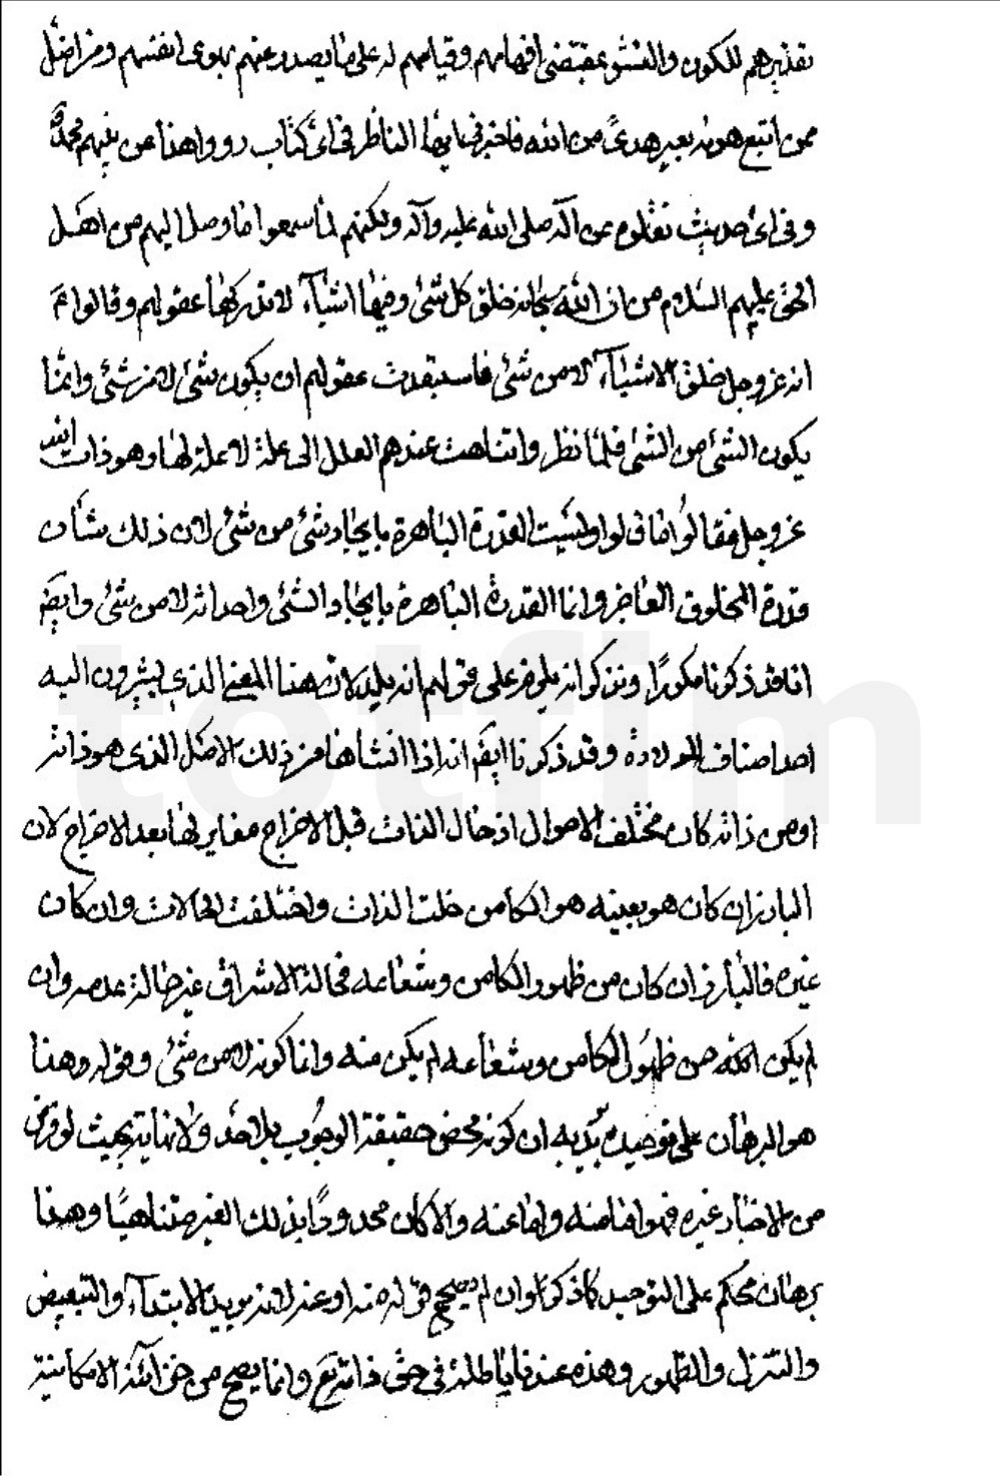 تقديرهم للكون والنشو بمقتضى افهامهم وقيامهم له على ما يصدر عنهم بهوى انفسهم ومن اضل
ممن اتبع هويه بغير هدى من الله فاخبرنى ايها الناظر فى اى كتاب رووا هذا عن نبيهم محمد ص
وفى اى حديث نقلوه عن آله صلى الله عليه وآله ولكنهم لما سمعوا ما وصل اليهم من اهل
الحق عليهم السلام من ان الله سبحانه خلق كل شئ وفيها اشياء لا تدركها عقولهم وقالوا ع
انه عز وجل خلق الاشياء لا من شئ فاستبعدت عقولهم ان يكون شئ لا من شئ وانما
يكون الشئ من الشئ فلما نظروا تناهت عندهم العلل الى علة لا علة لها وهو ذات الله
عز وجل فقالوا ما قالوا وليست القدرة الباهرة بايجاد شئ من شئ لان ذلك شأن
قدرة المخلوق العاجز وانما القدرة الباهرة بايجاد الشئ واحداثه لا من شئ وايضا
انا قد ذكرنا مكررا ونذكر انه يلزم على قولهم انه يلد لان هذا المعنى الذى يشيرون اليه
احد اصناف الولادة وقد ذكرنا ايضا انه اذا انشأها من ذلك الاصل الذى هو ذاته
او من ذاته كان مختلف الاحوال اذ حال الذات قبل الاخراج مغاير لها بعد الاخراج لان
البارز ان كان هو بعينه هو الكامن خلت الذات واختلفت الحالات وان كان
غيره فالبارز ان كان من ظهور الكامن وشعاعه فحالة الاشراق غير حالة عدمه وان
لم يكن من ظهور الكامن وشعاعه لم يكن منه وانما كونه لا من شئ وقوله وهذا
هو البرهان على توحيده يريد به ان كونه محض حقيقة الوجوب بلا حد ولا نهاية بحيث لو فرض
من الاخبار غيره فهو اما منه واما عنه والا كان محدودا بذلك الغير متناهيا وهذا
برهان محكم على التوحيد كما ذكر وان لم يصح قوله منه او عنه لانه يريد الابتداء والتبعيض
والتنزل والظهور وهذه عندنا باطلة فى حق ذاته تع وانما يصح من خزائنه الامكانية